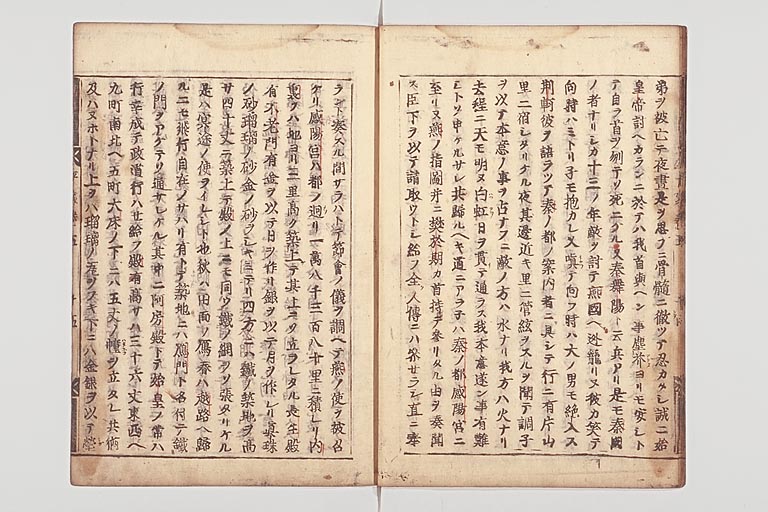 弟ヲ被亡テ夜晝是ヲ思フニ骨髓ニ徹ツテ忍カタシ誠ニ始
皇帝討ヘカランニ於テハ我首與ヘン事塵芥ヨリモ安シト
テ自ラ首ヲ刎テソ死ニケル又秦舞陽ト云兵アリ是モ秦國
ノ者ナリシカ十三ノ年敵ヲ討テ燕國ヘ迯籠リヌ彼カ笑テ
向時ハミトリ子モ抱カレ又嗔テ向フ時ハ大ノ男モ絶入ス
荊軻彼ヲ語ラツテ秦ノ都ノ案内者ニ具シテ行ニ有片山
里ニ宿シタリケル夜其邊近キ里ニ管絃ヲスルヲ聞テ調子
ヲ以テ本意ノ事ヲ占ナフニ敵ノ方ハ水ナリ我方ハ火ナリ
去程ニ天モ明ヌ白虹日ヲ貫テ通ラス我本意遂ン事有難
ミトソ申ケルサレ共歸ルヘキ道ニアラネハ秦ノ都咸陽宮ニ
至リヌ燕ノ指圖并ニ樊於期カ首持テ參リタル由ヲ奏聞
ス臣下ヲ以テ請取ウトシ給フ全人傳ニハ參サラシ直ニ奉
ラント奏スル間サラハトテ節會ノ儀ヲ調ヘテ燕ノ使ヲ被召
ケリ咸陽宮ハ都ノ廻リ一萬八千三百八十里ニ積レリ内
裏ヲハ地ヨリ三里高ク築上テ其上ニソ立ラレタル長生殿
有不老門有金ヲ以テ日ヲ作リ銀ヲ以テ月ヲ作レリ眞珠
ノ砂瑠璃ノ砂金ノ砂ヲシキミテリ四方ニハ鐵ノ築地ヲ高
サ四十丈ニ築上テ殿ノ上ニモ同ウ鐵ノ網ヲソ張タリケル
是ハ冥途ノ使ヲイレシト也秋ハ田面ノ雁春ハ越路ヘ歸
ルニモ飛行自在ノサハリ有トテ築地ニハ雁門ト名付テ鐵
ノ門ヲアケテソ通サレケル其中ニ阿房殿トテ始皇ノ常ハ
行幸成テ政道行ハサ給フ殿有高サハ三十六丈東西ヘ
九町南北ヘ五町大床ノ下ニハ五丈ノ幢ヲ立タレ共猶
及ハヌホトナリ上ヲハ瑠璃ノ瓦ヲフキ下ニハ金銀ヲ以テ瑩